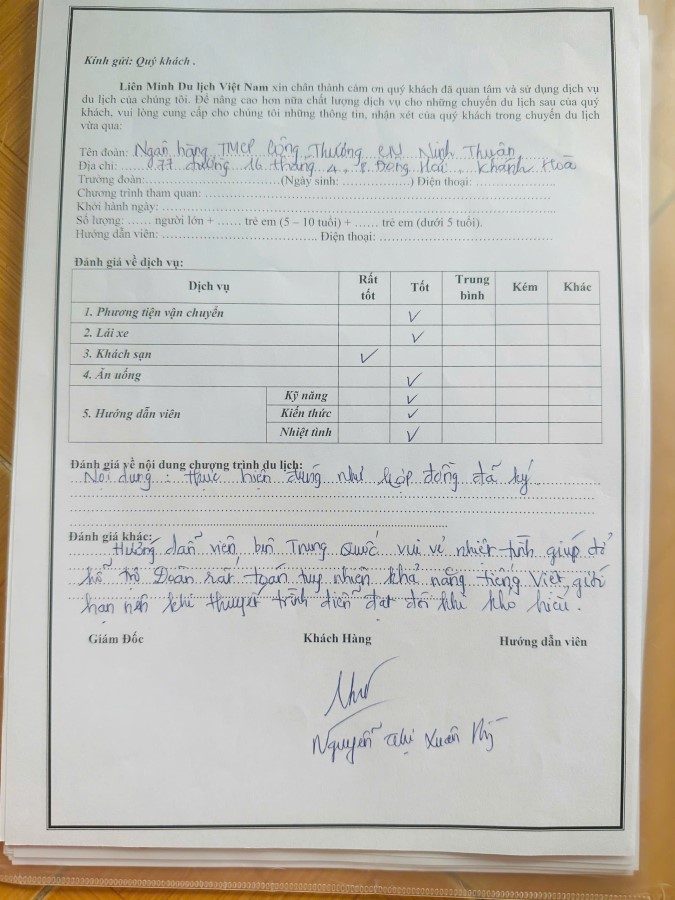 Kính gửi: Quý khách .
Liên Minh Du lịch Việt Nam xin chân thành cảm ơn quý khách đã quan tâm và sử dụng dịch vụ
du lịch của chúng tôi. Để nâng cao hơn nữa chất lượng dịch vụ cho những chuyến du lịch sau của quý
khách, vui lòng cung cấp cho chúng tôi những thông tin, nhận xét của quý khách trong chuyến du lịch
vừa qua:
Tên đoàn: Ngân hàng TMCP Công Thương CN Ninh Thuận
Địa chỉ: 077 đường 16 tháng 4, P. Đông Hải, Khánh Hoà
Trưởng đoàn:....................(Ngày sinh: ....................) Điện thoại: ....................
Chương trình tham quan: ....................
Khởi hành ngày: ....................
Số lượng: ...... người lớn + ...... trẻ em (5 – 10 tuổi) + ...... trẻ em (dưới 5 tuổi).
Hướng dẫn viên: .................... Điện thoại: ....................
Đánh giá về dịch vụ:
Dịch vụ Rất tốt Tốt Trung bình Kém Khác
1. Phương tiện vận chuyển ✓
2. Lái xe ✓
3. Khách sạn ✓
4. Ăn uống ✓
5. Hướng dẫn viên Kỹ năng ✓
Kiến thức ✓
Nhiệt tình ✓
Đánh giá về nội dung chượng trình du lịch:
Nội dung: thực hiện đúng như hợp đồng đã ký
Đánh giá khác:
Hướng dẫn viên bên Trung Quốc vui vẻ nhiệt tình giúp đỡ
hỗ trợ Đoàn rất tuy nhiên khả năng tiếng Việt giới
hạn nên khi thuyết trình diễn đạt đôi khi khó hiểu.
Giám Đốc Khách Hàng Hướng dẫn viên
Như
Nguyễn Thị Xuân